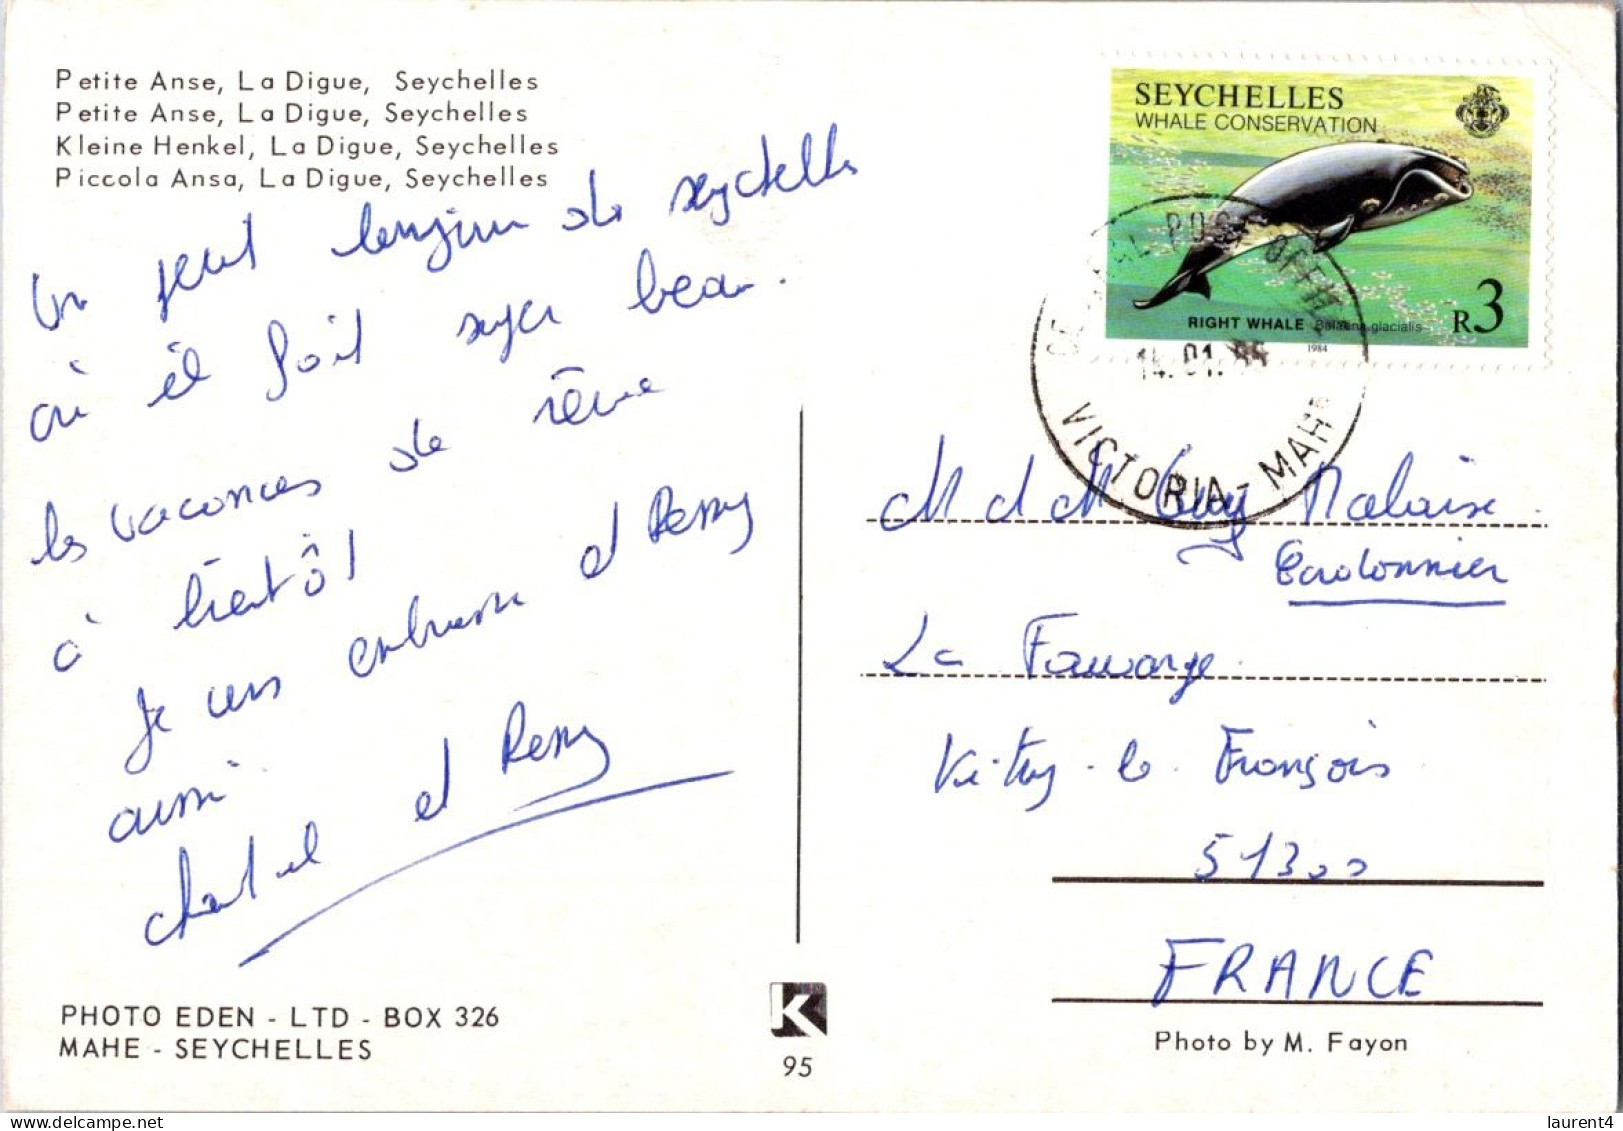 Petite Anse, La Digue, Seychelles
Petite Anse, La Digue, Seychelles
Kleine Henkel, La Digue, Seychelles
Piccola Ansa, La Digue, Seychelles
Un petit de seychelles
où il fait super beau.
les vacances de rêve
à bientôt
Je vous embrasse et Remy
aussi
chantal et Remy
PHOTO EDEN - LTD - BOX 326
MAHE - SEYCHELLES
K
95
SEYCHELLES
WHALE CONSERVATION
RIGHT WHALE Balaena glacialis
R3
1984
GENERAL POST OFFICE
14.01.
VICTORIA - MAHE
M et M Guy Malaise
Cordonnier
La
Vitry-le-François
51300
FRANCE
Photo by M. Fayon
laurent4